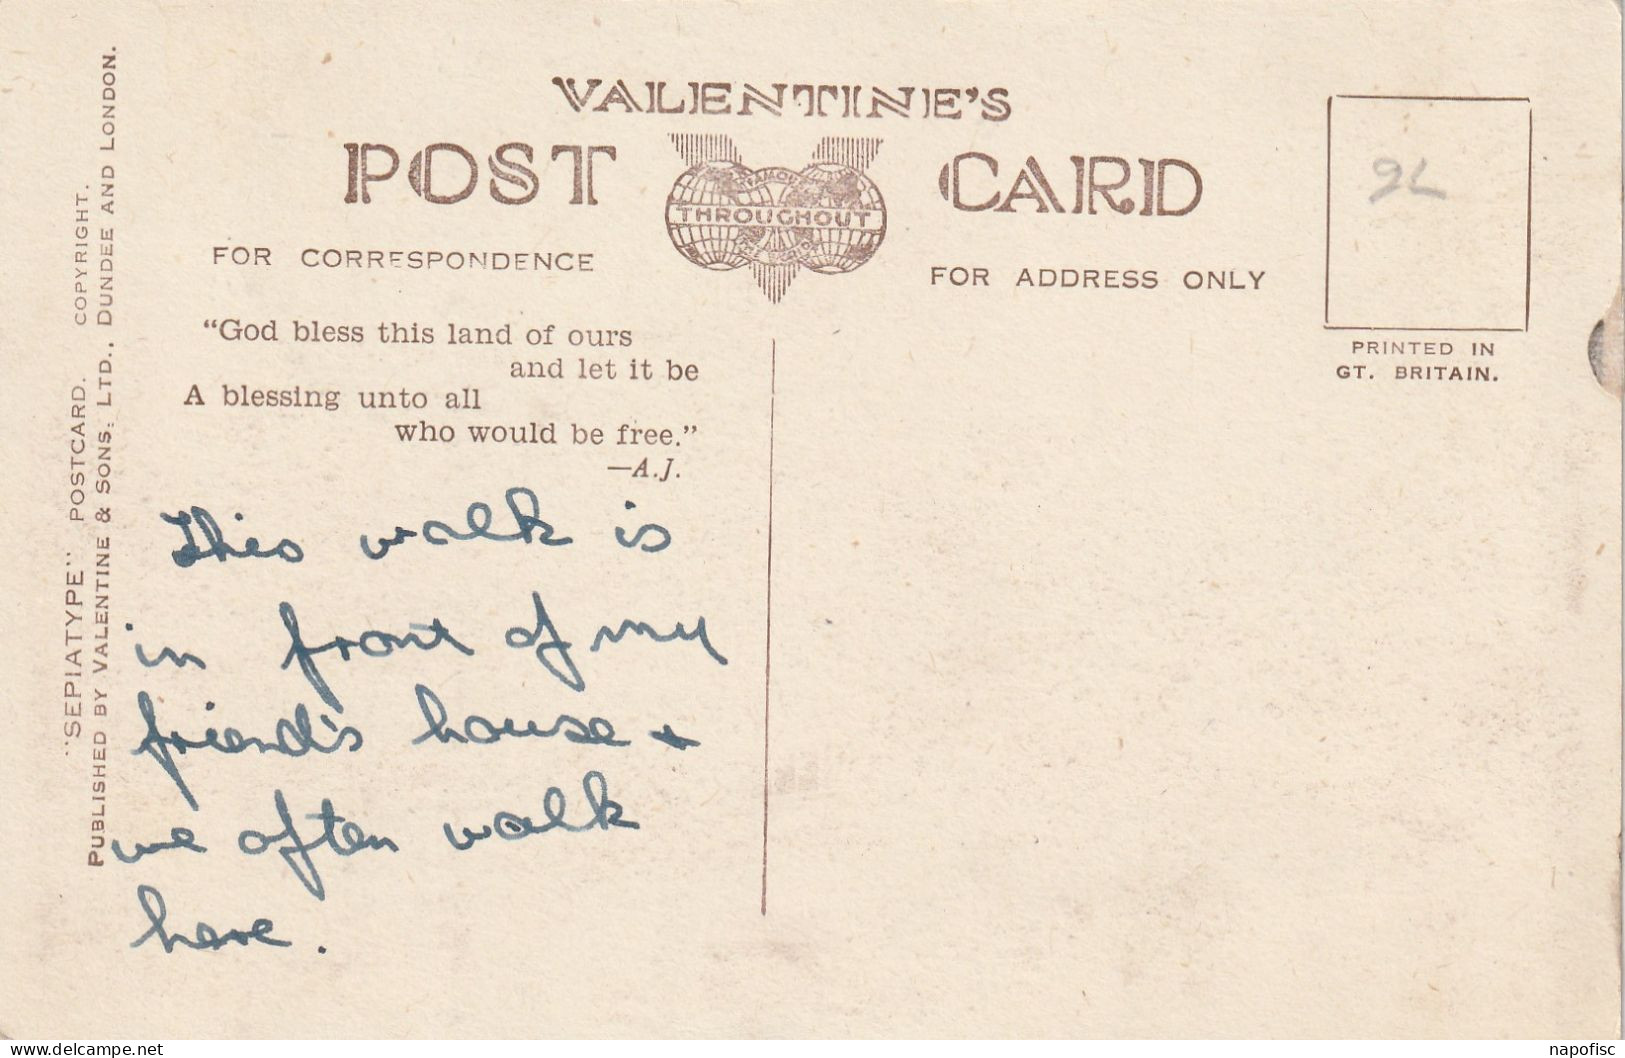 VALENTINE'S
POST CARD
FAMOUS
THROUGHOUT
THE WORLD
FOR CORRESPONDENCE
FOR ADDRESS ONLY
PRINTED IN
GT. BRITAIN.
"SEPIATYPE" POSTCARD. COPYRIGHT.
PUBLISHED BY VALENTINE & SONS, LTD., DUNDEE AND LONDON.
"God bless this land of ours
and let it be
A blessing unto all
who would be free."
—A.J.
This walk is
in front of my
friend's house +
we often walk
here.
delcampe.net
napofisc